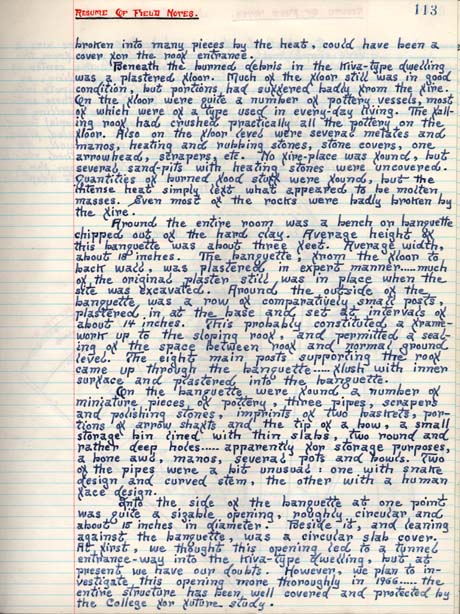 RESUME OF FIELD NOTES.
113
broken into many pieces by the heat, could have been a
cover for the roof entrance.
Beneath the burned debris in the Kiva-type dwelling
was a plastered floor. Much of the floor still was in good
condition, but portions had suffered badly from the fire.
On the floor were quite a number of pottery vessels, most
of which were of a type used in every-day living. The fall-
ing roof had crushed practically all the pottery on the
floor. Also on the floor level were several metates and
manos, heating and rubbing stones, stone covers, one
arrowhead, scrapers, etc. No fire-place was found, but
several sand-pits with heating stones were uncovered.
Quantities of burned food stuff were found, but the
intense heat simply left what appeared to be molten
masses. Even most of the rocks were badly broken by
the fire.
Around the entire room was a bench or banguette
chipped out of the hard clay. Average height of
this banguette was about three feet. Average width,
about 18 inches. The banguette, from the floor to
back wall, was plastered, in expert manner.....much
of the original plaster still was in place when the
site was excavated. Around the outside of the
banguette was a row of comparatively small posts,
plastered in at the base and set at intervals of
about 14 inches. This probably constituted a frame-
work up to the sloping roof, and permitted a seal-
ing of the space between roof and normal ground
level. The eight main posts supporting the roof
came up through the banguette.....flush with inner
surface and plastered into the banguette.
On the banguette were found a number of
miniature pieces of pottery, three pipes, scrapers
and polishing stones, imprints of two baskets, por-
tions of arrow shafts and the tip of a bow, a small
storage bin lined with thin slabs, two round and
rather deep holes..... apparently for storage purposes,
a bone awl, manos, several pots and bowls. Two
of the pipes were a bit unusual: one with snake
design and curved stem, the other with a human
face design.
Into the side of the banguette at one point
was quite a sizable opening, roughly circular and
about 15 inches in diameter. Beside it, and leaning
against the banguette, was a circular slab cover.
At first, we thought this opening led to a tunnel
entrance-way into the Kiva-type dwelling, but at
present we have our doubts. However, we plan to in-
vestigate this opening more thoroughly in 1966..... the
entire structure has been well covered and protected by
the College for future study.